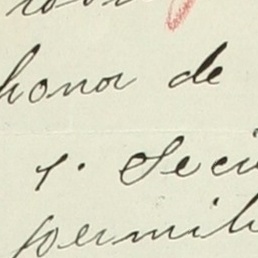 honor de
y. Seci
permit